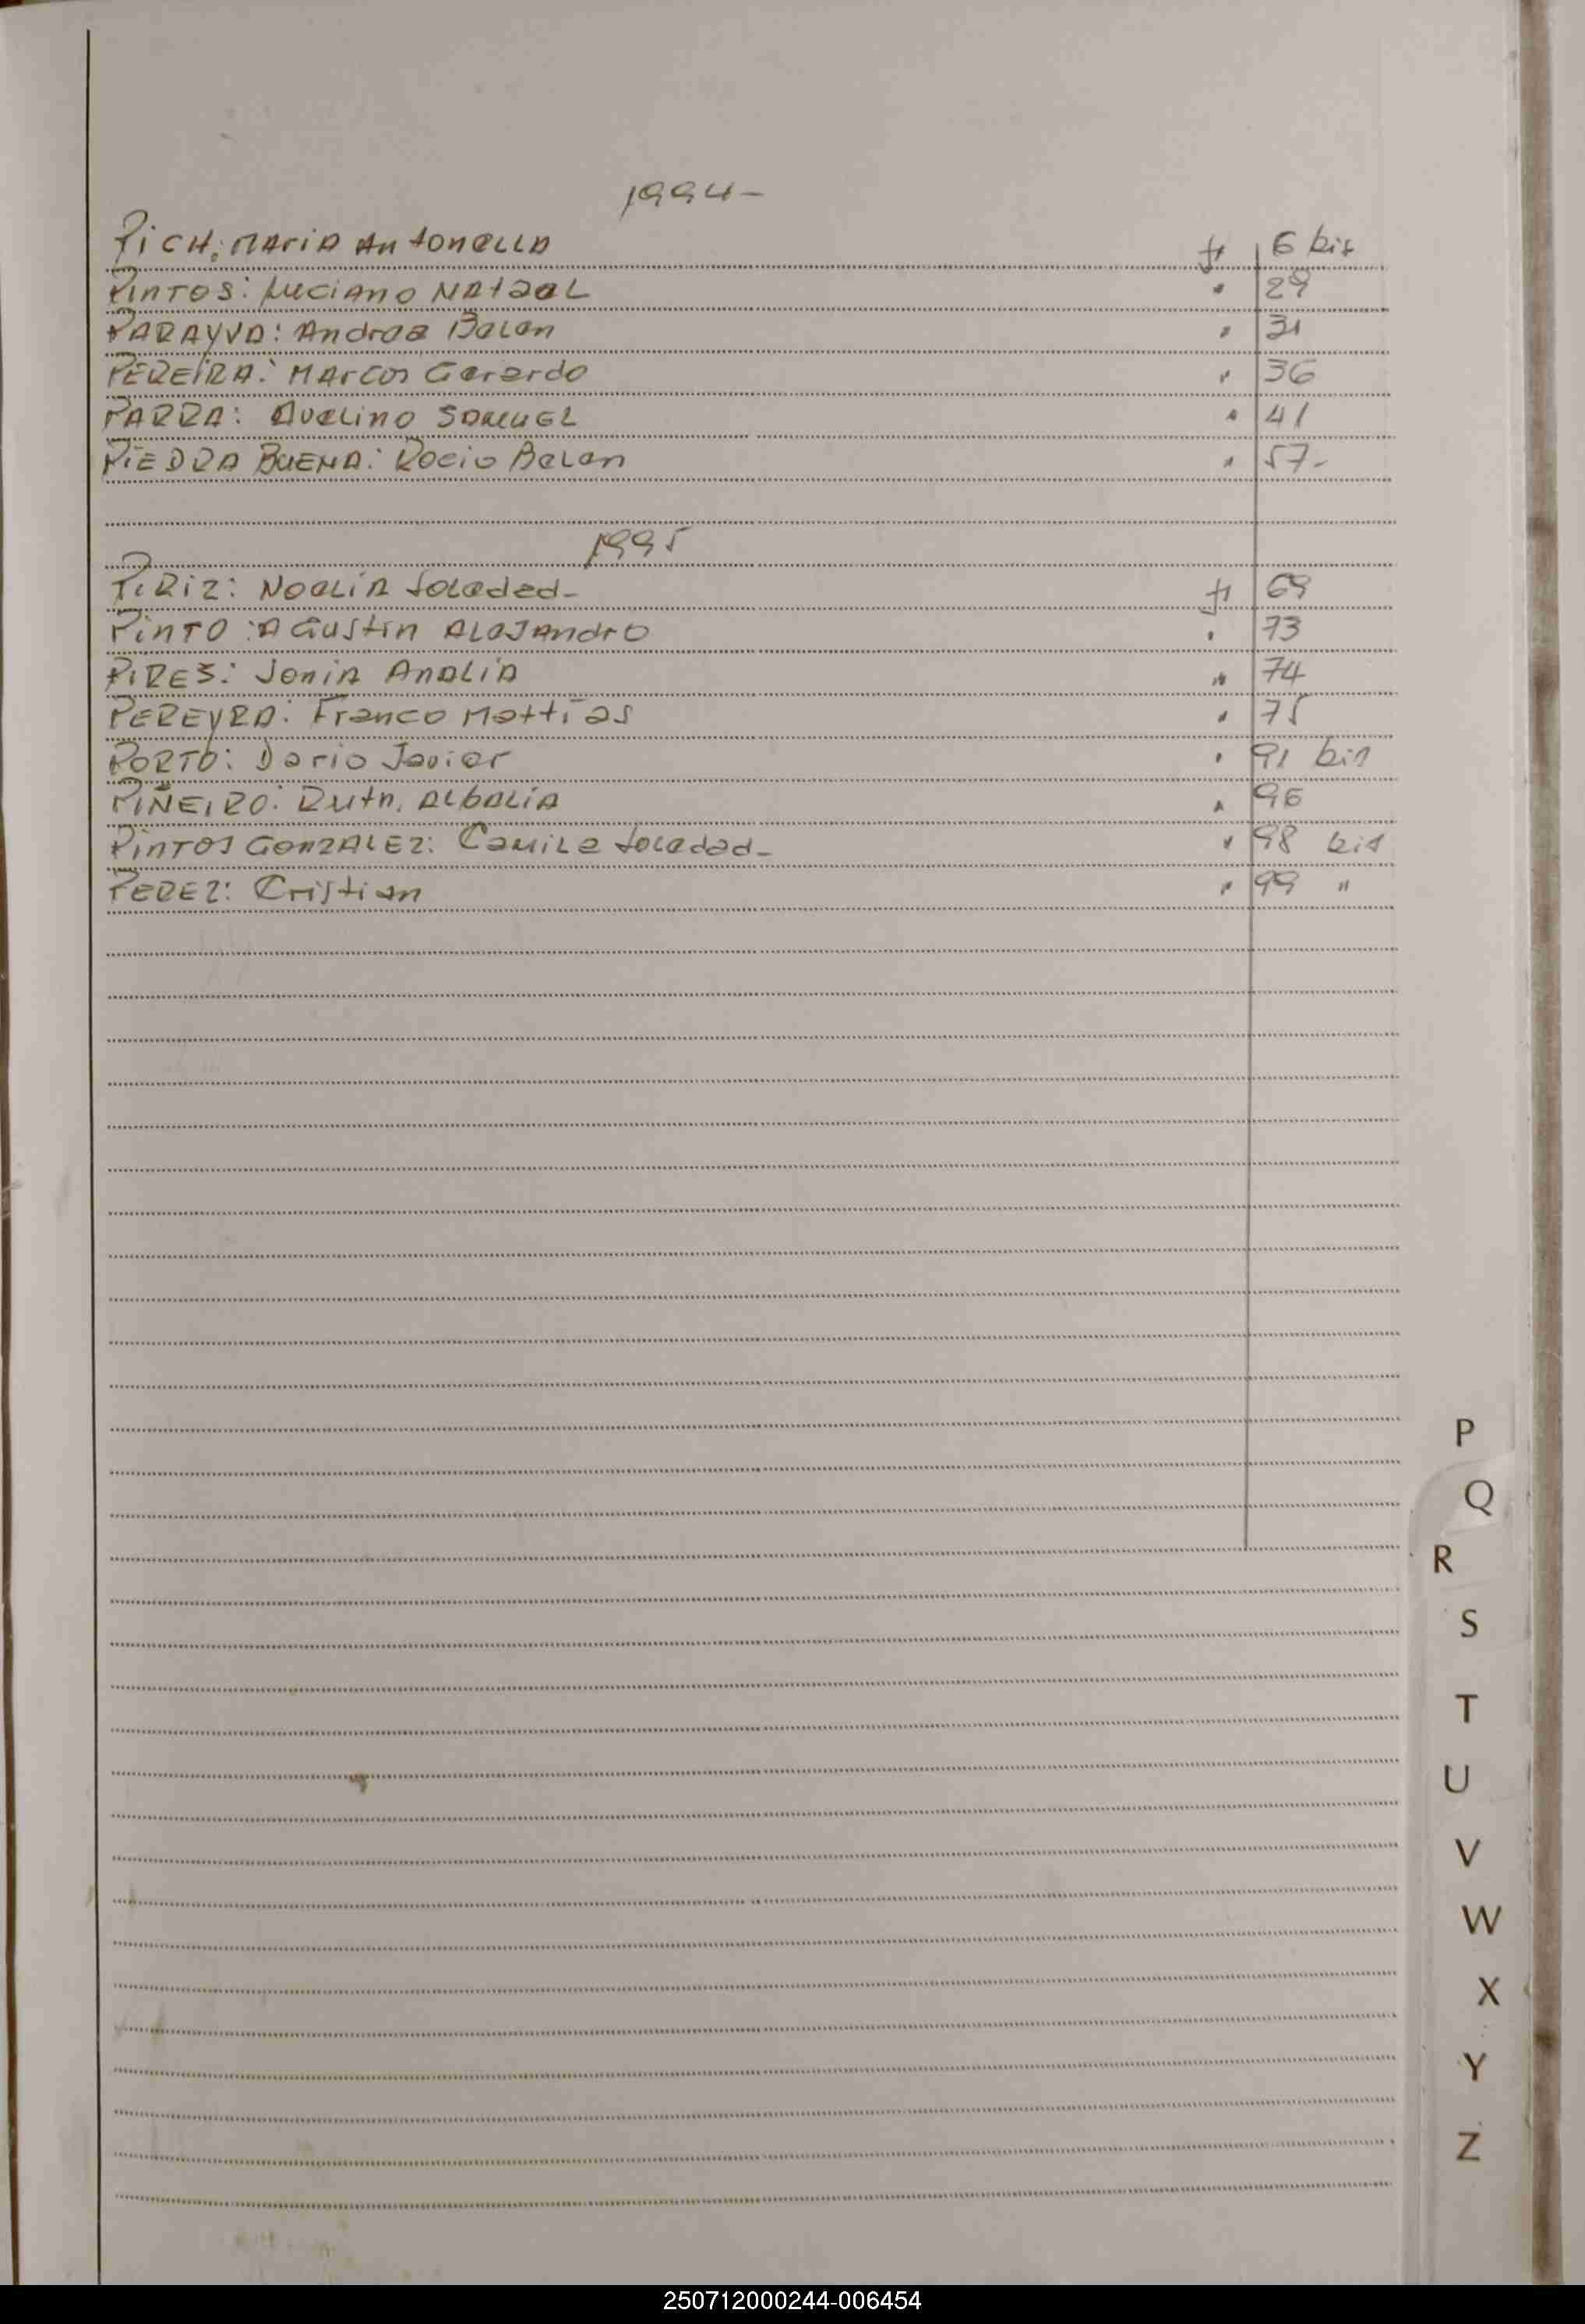 1994-
PICH: MARIA Antonella f1 6 bis
PINTOS: Luciano Natael " 29
PARAYVA: Andrea Belen " 31
PEREIRA: Marcos Gerardo " 36
PARRA: Avelino Samuel " 41
PIEDRA BUENA: Rocio Belen " 57-
1995
PIRIZ: Noelia Soledad- f1 69
PINTO: Agustin Alejandro " 73
PIRES: Jonia Analia " 74
PEREYRA: Franco Mattias " 75
PORTO: Dario Javier " 91 bis
PIÑEIRO: Ruth, Albalia " 96
PINTOS GONZALEZ: Camila Soledad- " 98 bis
PEREZ: Cristian " 99 "
P
Q
R
S
T
U
V
W
X
Y
Z
250712000244-006454